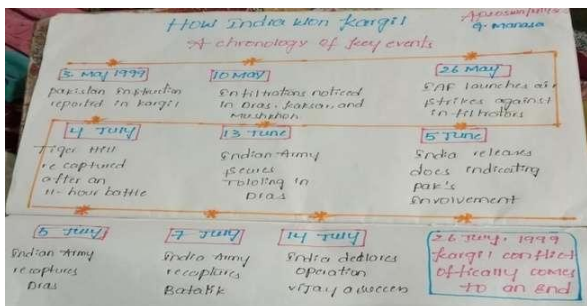 How India won Kargil
A chronology of key events
3 May 1999
pakistan
reported in kargil
10 May
Infiltrations noticed
in Dras, kaksar, and
Mushkhoh
26 May
IAF launches air
strikes against
infiltrators
4 July
Tiger Hill
recaptured
after an
11-hour battle
13 June
Indian Army
secures
Tololing in
Dras
5 June
India releases
docs indicating
pak's
involvement
5 July
Indian Army
recaptures
Dras
7 July
India Army
recaptures
Batalik
14 July
India declares
operation
vijay a success
26 July, 1999
kargil conflict
offically comes
to an end